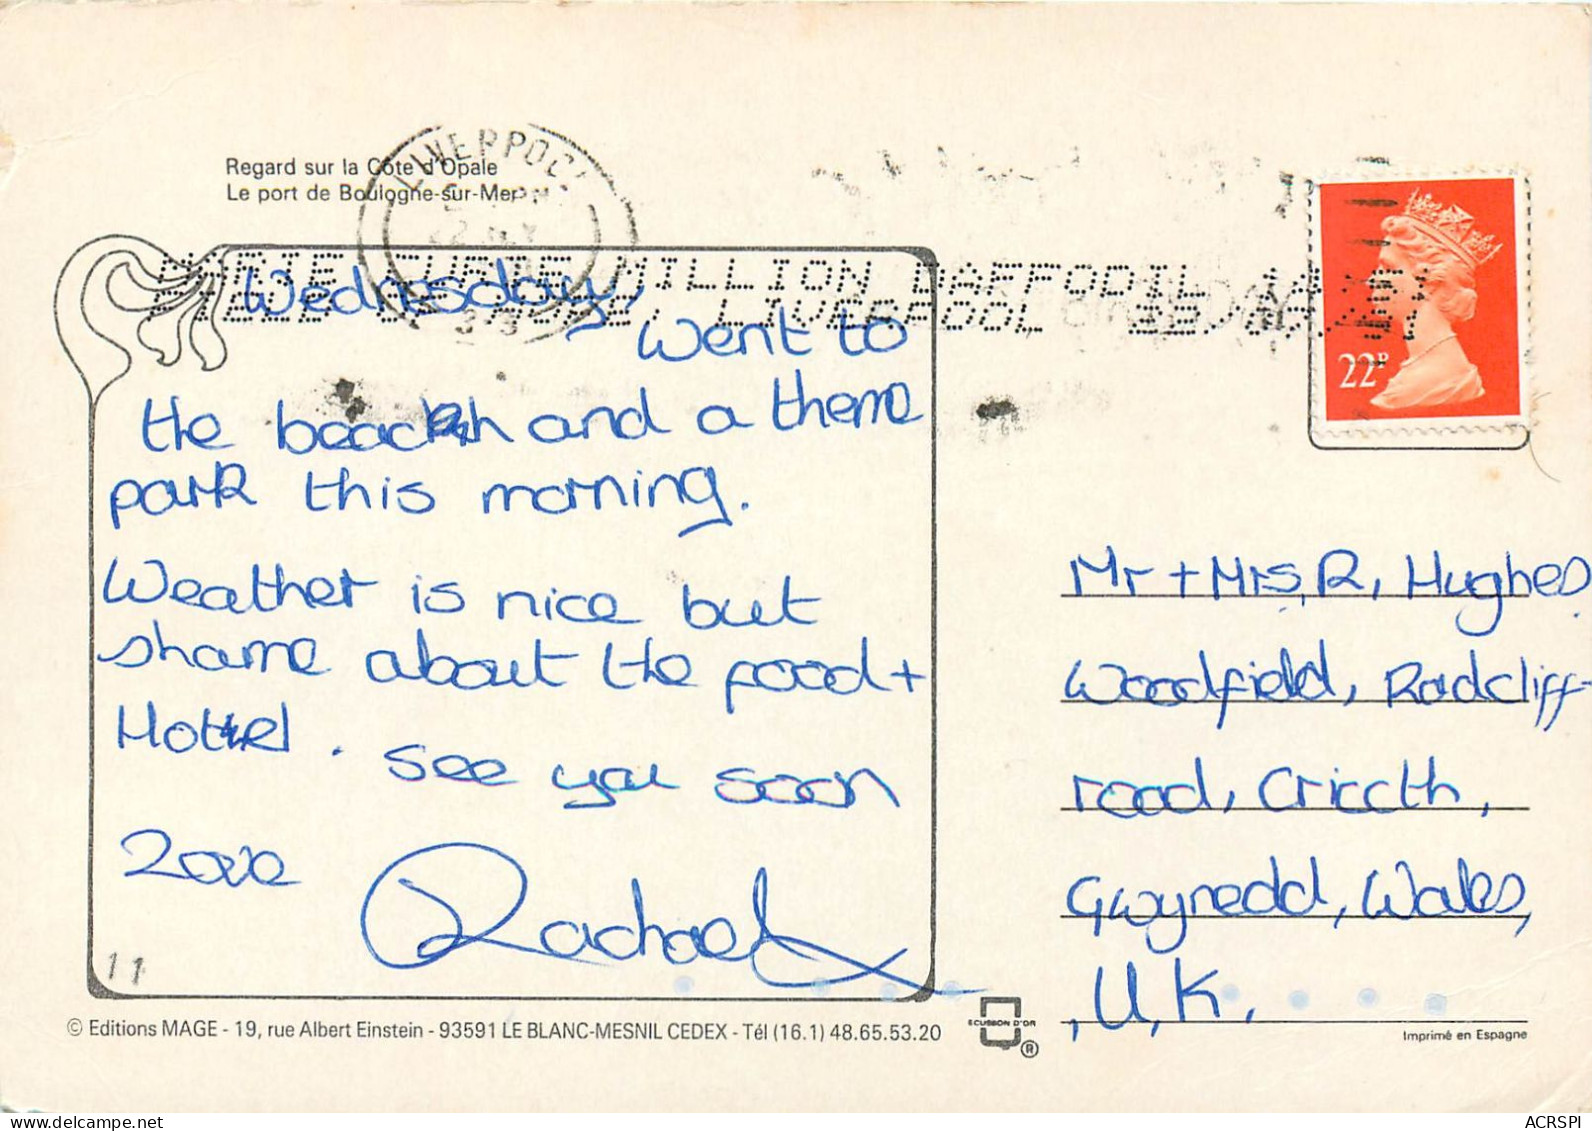 Regard sur la Côte d'Opale
Le port de Boulogne-sur-Mer
LIVERPOOL
MARIE CURIE MILLION DAFFODIL
LIVERPOOL
22P
Wednesday,
Went to
the beach and a theme
park this morning.
Weather is nice but
shame about the food +
Hotel. See you soon
Love
Rachael x
11
Mr + Mrs, R, Hughes
Woodfield, Radcliff-
road, Criccth,
Gwynedd, Wales,
, U, K,
© Editions MAGE - 19, rue Albert Einstein - 93591 LE BLANC-MESNIL CEDEX - Tél (16.1) 48.65.53.20
ECUSSON D'OR
®
Imprimé en Espagne
ACRSPI